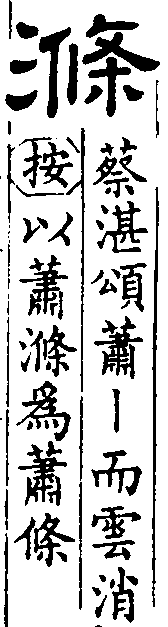 滌
蔡湛頌蕭丨而雲消
按以蕭滌為蕭條